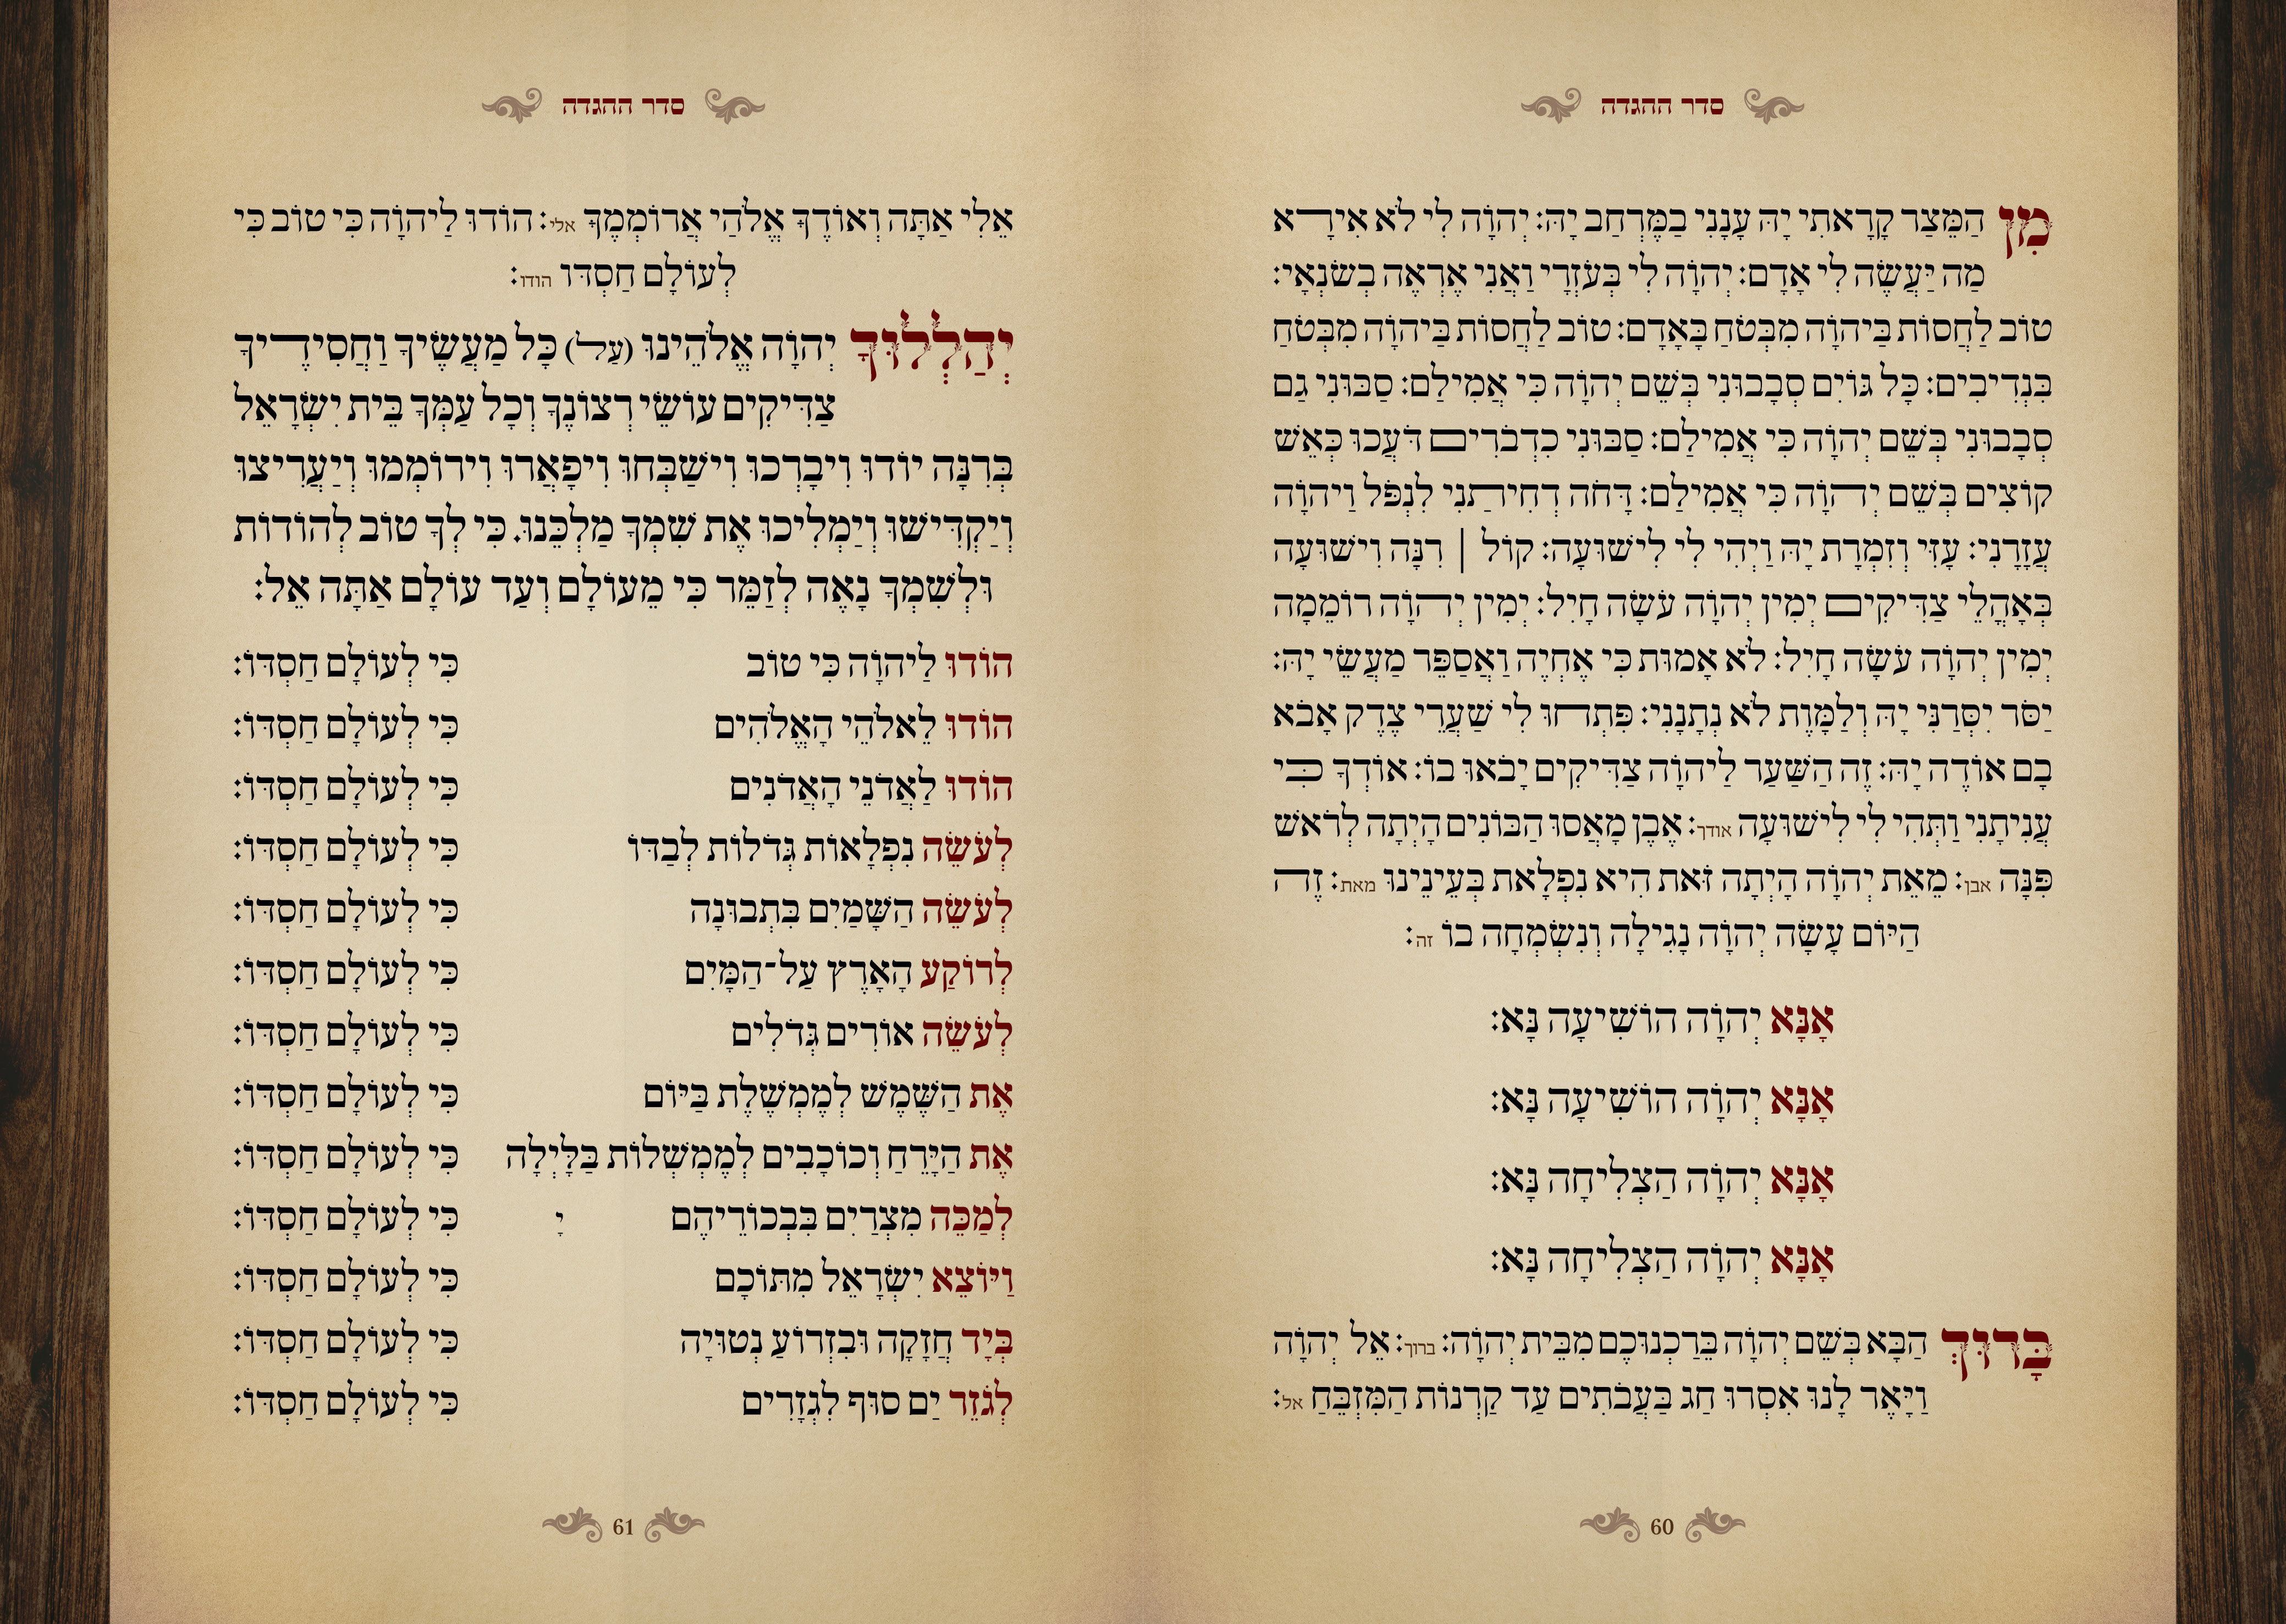 סדר ההגדה
מִן הַמֵּצַר קָרָאתִי יָּהּ עָנָנִי בַמֶּרְחַב יָהּ: יְהוָֹה לִי לֹא אִירָא
מַה יַּעֲשֶׂה לִי אָדָם: יְהוָֹה לִי בְּעֹזְרָי וַאֲנִי אֶרְאֶה בְשֹׂנְאָי:
טוֹב לַחֲסוֹת בַּיהוָֹה מִבְּטֹחַ בָּאָדָם: טוֹב לַחֲסוֹת בַּיהוָֹה מִבְּטֹחַ
בִּנְדִיבִים: כָּל גּוֹיִם סְבָבוּנִי בְּשֵׁם יְהוָֹה כִּי אֲמִילַם: סַבּוּנִי גַם
סְבָבוּנִי בְּשֵׁם יְהוָֹה כִּי אֲמִילַם: סַבּוּנִי כִדְבֹרִים דֹּעֲכוּ כְּאֵשׁ
קוֹצִים בְּשֵׁם יְהוָֹה כִּי אֲמִילַם: דָּחֹה דְחִיתַנִי לִנְפֹּל וַיהוָֹה
עֲזָרָנִי: עָזִּי וְזִמְרָת יָהּ וַיְהִי לִי לִישׁוּעָה: קוֹל | רִנָּה וִישׁוּעָה
בְּאָהֳלֵי צַדִּיקִים יְמִין יְהוָֹה עֹשָׂה חָיִל: יְמִין יְהוָֹה רוֹמֵמָה
יְמִין יְהוָֹה עֹשָׂה חָיִל: לֹא אָמוּת כִּי אֶחְיֶה וַאֲסַפֵּר מַעֲשֵׂי יָהּ:
יַסֹּר יִסְּרַנִּי יָּהּ וְלַמָּוֶת לֹא נְתָנָנִי: פִּתְחוּ לִי שַׁעֲרֵי צֶדֶק אָבֹא
בָם אוֹדֶה יָהּ: זֶה הַשַּׁעַר לַיהוָֹה צַדִּיקִים יָבֹאוּ בוֹ: אוֹדְךָ כִּי
עֲנִיתָנִי וַתְּהִי לִי לִישׁוּעָה אודך: אֶבֶן מָאֲסוּ הַבּוֹנִים הָיְתָה לְרֹאשׁ
פִּנָּה אבן: מֵאֵת יְהוָֹה הָיְתָה זֹּאת הִיא נִפְלָאת בְּעֵינֵינוּ מאת: זֶה
הַיּוֹם עָשָׂה יְהוָֹה נָגִילָה וְנִשְׂמְחָה בוֹ זה:
אָנָּא יְהוָֹה הוֹשִׁיעָה נָּא:
אָנָּא יְהוָֹה הוֹשִׁיעָה נָּא:
אָנָּא יְהוָֹה הַצְלִיחָה נָּא:
אָנָּא יְהוָֹה הַצְלִיחָה נָּא:
בָּרוּךְ הַבָּא בְּשֵׁם יְהוָֹה בֵּרַכְנוּכֶם מִבֵּית יְהוָֹה: ברוך: אֵל יְהוָֹה
וַיָּאֶר לָנוּ אִסְרוּ חַג בַּעֲבֹתִים עַד קַרְנוֹת הַמִּזְבֵּחַ אל:
60
סדר ההגדה
אֵלִי אַתָּה וְאוֹדֶךָּ אֱלֹהַי אֲרוֹמְמֶךָּ אלי: הוֹדוּ לַיהוָֹה כִּי טוֹב כִּי
לְעוֹלָם חַסְדּוֹ הודו:
יְהַלְלוּךָ יְהוָֹה אֱלֹהֵינוּ (עַל) כָּל מַעֲשֶׂיךָ וַחֲסִידֶיךָ
צַדִּיקִים עוֹשֵׂי רְצוֹנֶךָ וְכָל עַמְּךָ בֵּית יִשְׂרָאֵל
בְּרִנָּה יוֹדוּ וִיבָרְכוּ וִישַׁבְּחוּ וִיפָאֲרוּ וִירוֹמְמוּ וְיַעֲרִיצוּ
וְיַקְדִּישׁוּ וְיַמְלִיכוּ אֶת שִׁמְךָ מַלְכֵּנוּ. כִּי לְךָ טוֹב לְהוֹדוֹת
וּלְשִׁמְךָ נָאֶה לְזַמֵּר כִּי מֵעוֹלָם וְעַד עוֹלָם אַתָּה אֵל:
הוֹדוּ לַיהוָֹה כִּי טוֹב כִּי לְעוֹלָם חַסְדּוֹ:
הוֹדוּ לֵאלֹהֵי הָאֱלֹהִים כִּי לְעוֹלָם חַסְדּוֹ:
הוֹדוּ לַאֲדֹנֵי הָאֲדֹנִים כִּי לְעוֹלָם חַסְדּוֹ:
לְעֹשֵׂה נִפְלָאוֹת גְּדֹלוֹת לְבַדּוֹ כִּי לְעוֹלָם חַסְדּוֹ:
לְעֹשֵׂה הַשָּׁמַיִם בִּתְבוּנָה כִּי לְעוֹלָם חַסְדּוֹ:
לְרוֹקַע הָאָרֶץ עַל־הַמָּיִם כִּי לְעוֹלָם חַסְדּוֹ:
לְעֹשֵׂה אוֹרִים גְּדֹלִים כִּי לְעוֹלָם חַסְדּוֹ:
אֶת הַשֶּׁמֶשׁ לְמֶמְשֶׁלֶת בַּיּוֹם כִּי לְעוֹלָם חַסְדּוֹ:
אֶת הַיָּרֵחַ וְכוֹכָבִים לְמֶמְשְׁלוֹת בַּלָּיְלָה כִּי לְעוֹלָם חַסְדּוֹ:
לְמַכֵּה מִצְרַיִם בִּבְכוֹרֵיהֶם יָ כִּי לְעוֹלָם חַסְדּוֹ:
וַיּוֹצֵא יִשְׂרָאֵל מִתּוֹכָם כִּי לְעוֹלָם חַסְדּוֹ:
בְּיָד חֲזָקָה וּבִזְרוֹעַ נְטוּיָה כִּי לְעוֹלָם חַסְדּוֹ:
לְגֹזֵר יַם סוּף לִגְזָרִים כִּי לְעוֹלָם חַסְדּוֹ:
61